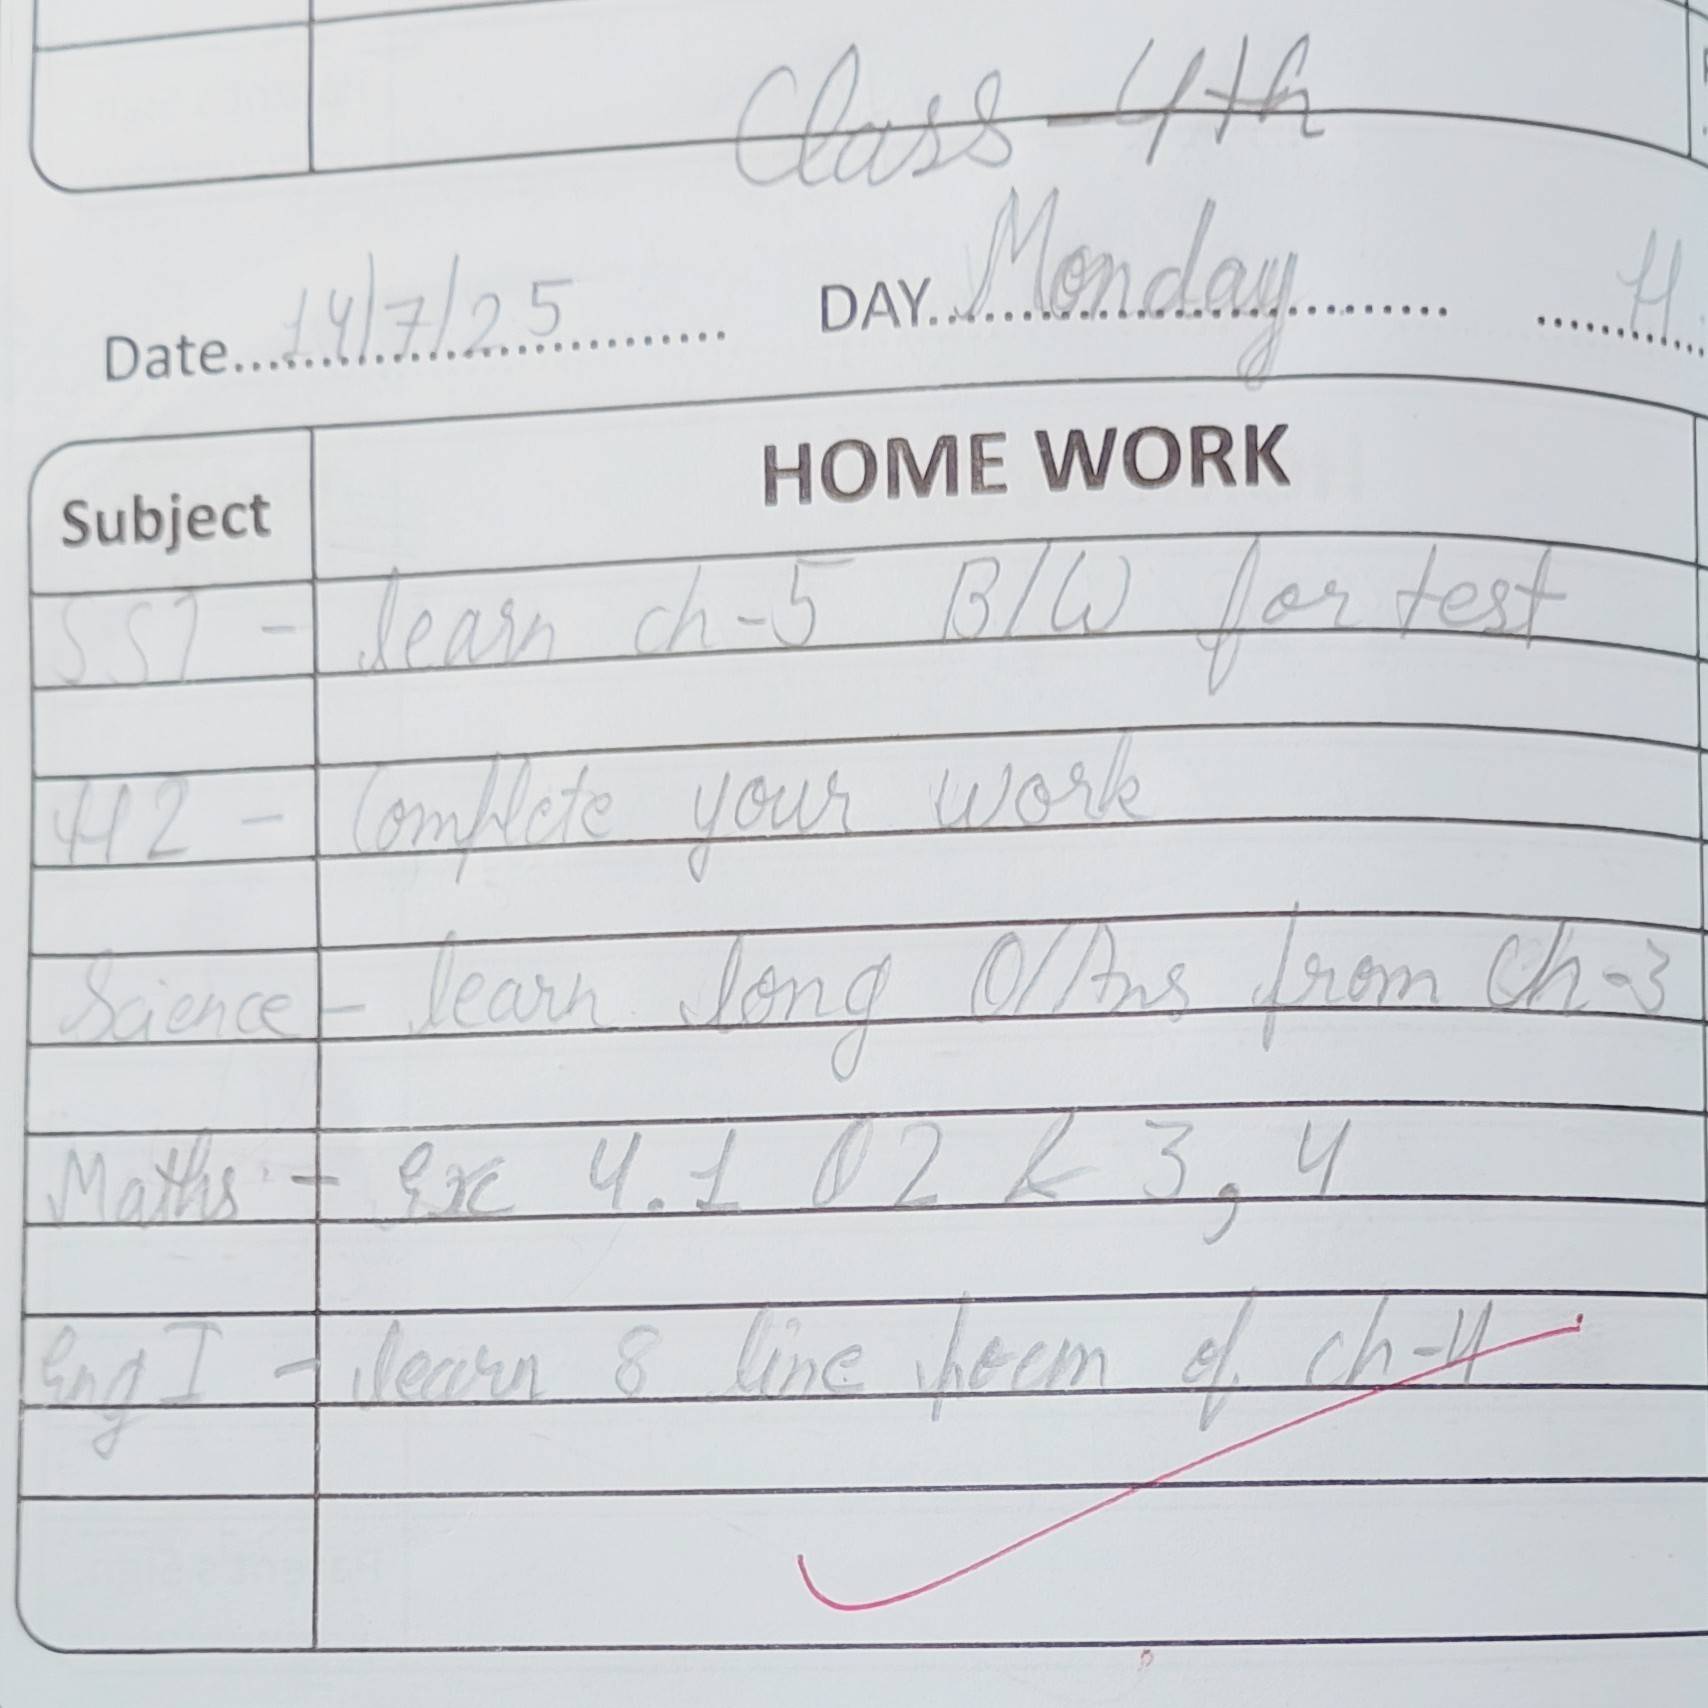 Class - 4th
Date 14/7/25 DAY Monday H
Subject HOME WORK
SST - learn ch-5 B/W for test
H2 - Complete your work
Science - learn long Q/Ans from Ch-3
Maths - Ex 4.1 Q2 & 3, 4
Eng I - learn 8 line poem of ch-4